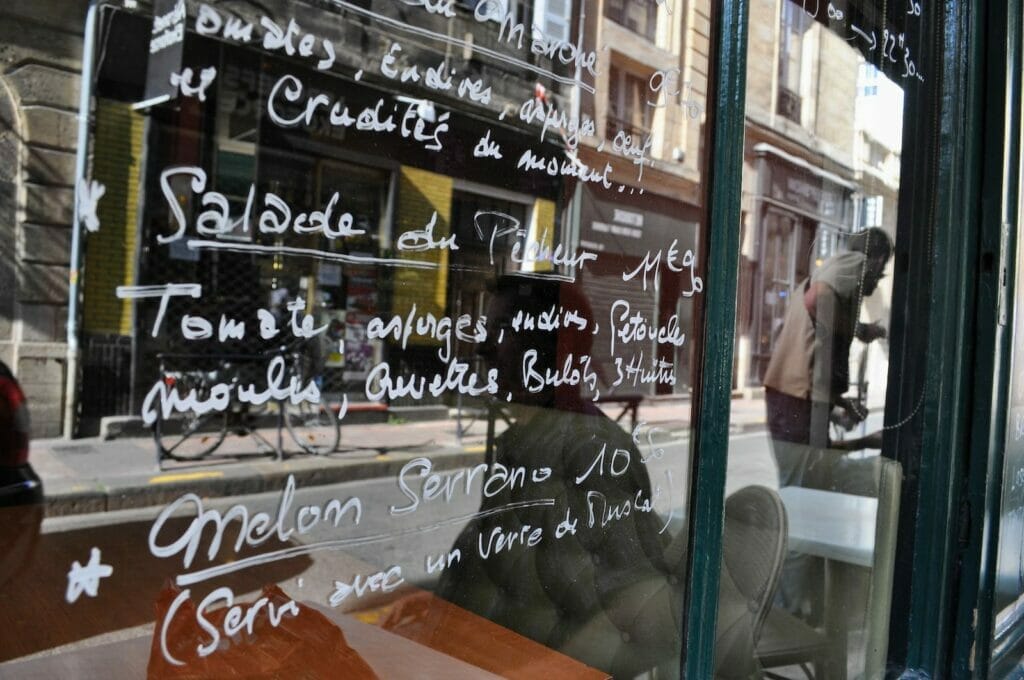 du Marché 9€50
Tomates, Endives, asperges, œuf,
et Crudités du moment...
* Salade du Pêcheur 11€90
Tomate, asperges, endives, Pétoncles
moules, Crevettes, Bulots, 3 Huitres
* Melon Serrano 10€50
(Servi avec un verre de Muscat)
00 → 22H30...